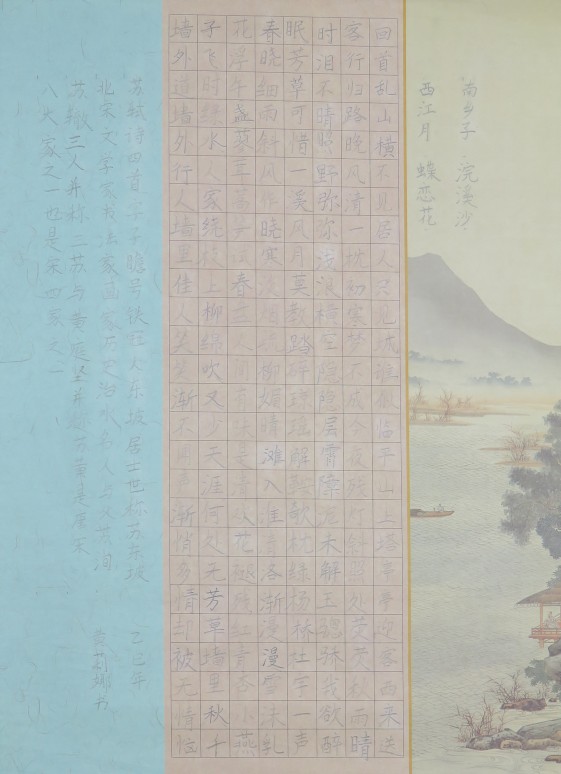 南乡子 浣溪沙
西江月 蝶恋花
回首乱山横不见居人只见城谁似临平山上塔亭亭迎客西来送
客行归路晚风清一枕初寒梦不成今夜残灯斜照处荧荧秋雨晴
时泪不晴照野弥弥浅浪横空隐隐层霄障泥未解玉骢骄我欲醉
眠芳草可惜一溪风月莫教踏碎琼瑶解鞍欹枕绿杨桥杜宇一声
春晓细雨斜风作晓寒淡烟疏柳媚晴滩入淮清洛渐漫漫雪沫乳
花浮午盏蓼茸蒿笋试春盘人间有味是清欢花褪残红青杏小燕
子飞时绿水人家绕枝上柳绵吹又少天涯何处无芳草墙里秋千
墙外道墙外行人墙里佳人笑笑渐不闻声渐悄多情却被无情恼
苏轼诗四首字子瞻号铁冠大东坡居士世称苏东坡
北宋文学家书法家画家历史治水名人与父苏洵
苏辙三人并称三苏与黄庭坚并称苏黄是唐宋
八大家之一也是宋四家之一
乙巳年